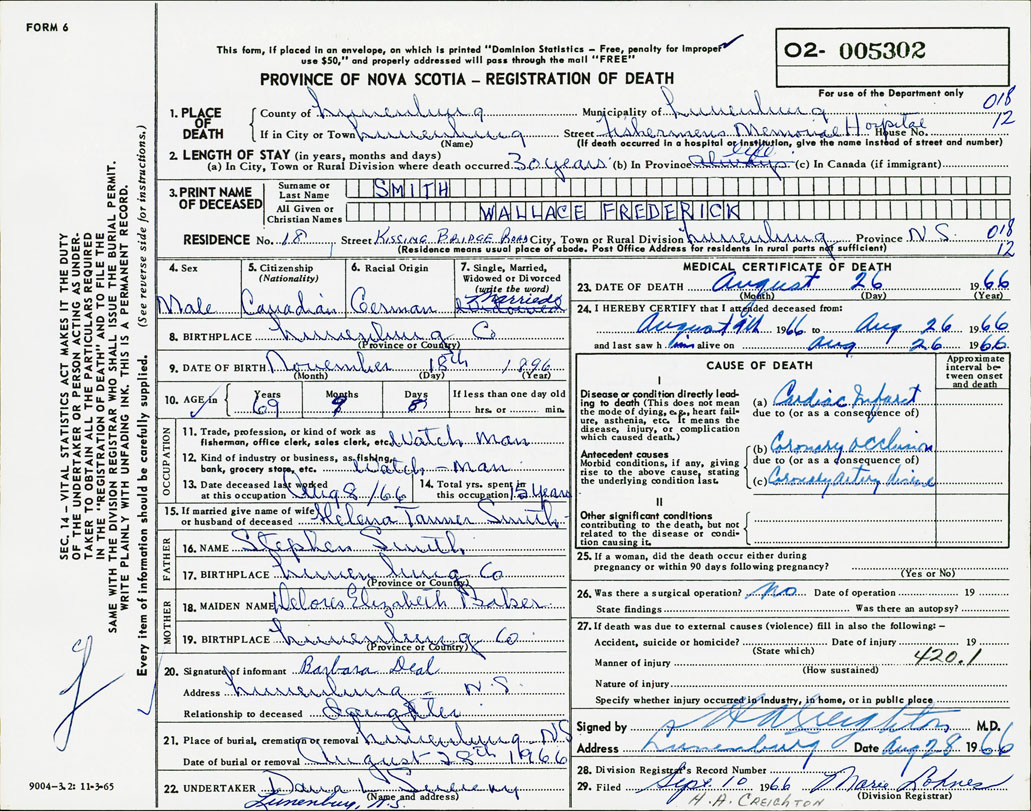 FORM 6
This form, if placed in an envelope, on which is printed "Dominion Statistics – Free, penalty for improper
use $50," and properly addressed will pass through the mail "FREE"
PROVINCE OF NOVA SCOTIA – REGISTRATION OF DEATH
02- 005302
For use of the Department only
018
12
1. PLACE OF DEATH
County of Lunenburg Municipality of Lunenburg
If in City or Town Lunenburg Street Fishermens Memorial Hospital House No.
(Name) (If death occurred in a hospital or institution, give the name instead of street and number)
2. LENGTH OF STAY (in years, months and days)
(a) In City, Town or Rural Division where death occurred 30 years (b) In Province always life (c) In Canada (if immigrant)
3. PRINT NAME OF DECEASED
Surname or Last Name SMITH
All Given or Christian Names WALLACE FREDERICK
RESIDENCE No. 18 Street KISSING BRIDGE ROAD City, Town or Rural Division Lunenburg Province N.S. 018
12
(Residence means usual place of abode. Post Office Address for residents in rural parts not sufficient)
4. Sex Male
5. Citizenship (Nationality) Canadian
6. Racial Origin German
7. Single, Married, Widowed or Divorced (write the word) Married
8. BIRTHPLACE Lunenburg Co
(Province or County)
9. DATE OF BIRTH November 18th 1896
(Month) (Day) (Year)
10. AGE in Years 69 Months 9 Days 8 If less than one day old hrs. or min.
OCCUPATION
11. Trade, profession, or kind of work as fisherman, office clerk, sales clerk, etc. Watch man
12. Kind of industry or business, as fishing, bank, grocery store, etc. Watch - man
13. Date deceased last worked at this occupation Aug 8/66
14. Total yrs. spent in this occupation 15 years
15. If married give name of wife or husband of deceased Helena Tanner Smith
FATHER
16. NAME Stephen Smith
17. BIRTHPLACE Lunenburg Co
(Province or County)
MOTHER
18. MAIDEN NAME Delores Elizabeth Baker
19. BIRTHPLACE Lunenburg Co
(Province or County)
20. Signature of informant Barbara Deal
Address Lunenburg - N.S.
Relationship to deceased Daughter
21. Place of burial, cremation or removal Lunenburg N.S
Date of burial or removal August 28th 1966
22. UNDERTAKER Dana L. Sweeny
(Name and address)
Lunenburg, N.S.
MEDICAL CERTIFICATE OF DEATH
23. DATE OF DEATH August 26 1966
(Month) (Day) (Year)
24. I HEREBY CERTIFY that I attended deceased from
August 9th 1966 to Aug 26 1966
and last saw him alive on Aug 26 1966
CAUSE OF DEATH
Approximate interval between onset and death
I
Disease or condition directly leading to death (This does not mean the mode of dying, e.g., heart failure, asthenia, etc. It means the disease, injury, or complication which caused death.)
(a) Cardiac Infarct
due to (or as a consequence of)
Antecedent causes
Morbid conditions, if any, giving rise to the above cause, stating the underlying condition last.
(b) Coronary occlusion
due to (or as a consequence of)
(c) Coronary Artery Disease
II
Other significant conditions
contributing to the death, but not related to the disease or condition causing it.
25. If a woman, did the death occur either during pregnancy or within 90 days following pregnancy?
(Yes or No)
26. Was there a surgical operation? No Date of operation 19
State findings Was there an autopsy?
27. If death was due to external causes (violence) fill in also the following: –
Accident, suicide or homicide? Date of injury 19
(State which)
Manner of injury 420.1
(How sustained)
Nature of injury
Specify whether injury occurred in industry, in home, or in public place
Signed by H A Creighton M.D.
Address Lunenburg Date Aug 28 1966
28. Division Registrar's Record Number
29. Filed Sept. 10 1966 Marie Lohnes
(Division Registrar)
H.A. CREIGHTON
SEC. 14 – VITAL STATISTICS ACT MAKES IT THE DUTY
OF THE UNDERTAKER OR PERSON ACTING AS UNDER-
TAKER TO OBTAIN ALL THE PARTICULARS REQUIRED
IN THE "REGISTRATION OF DEATH" AND TO FILE THE
SAME WITH THE DIVISION REGISTRAR WHO SHALL ISSUE THE BURIAL PERMIT.
WRITE PLAINLY WITH UNFADING INK. THIS IS A PERMANENT RECORD.
Every item of information should be carefully supplied. (See reverse side for instructions.)
9004-3.2: 11-3-65